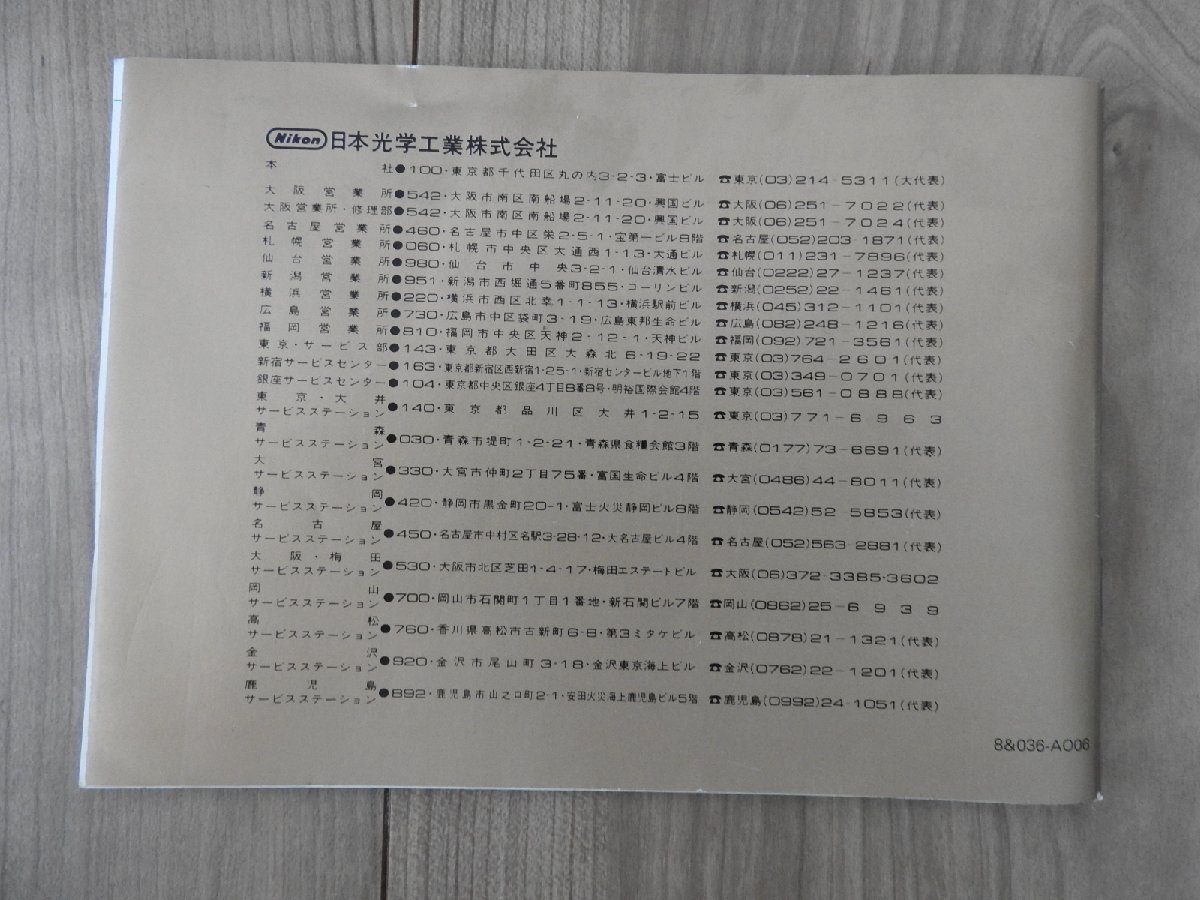 Nikon 日本光学工業株式会社
本社●100・東京都千代田区丸の内3-2-3・富士ビル ☎東京(03)214-5311(大代表)
大阪営業所●542・大阪市南区南船場2-11-20・興国ビル ☎大阪(06)251-7022(代表)
大阪営業所・修理部●542・大阪市南区南船場2-11-20・興国ビル ☎大阪(06)251-7024(代表)
名古屋営業所●460・名古屋市中区栄2-5-1・宝第一ビル8階 ☎名古屋(052)203-1871(代表)
札幌営業所●060・札幌市中央区大通西1-13・大通ビル ☎札幌(011)231-7896(代表)
仙台営業所●980・仙台市中央3-2-1・仙台清水ビル ☎仙台(0222)27-1237(代表)
新潟営業所●951・新潟市西堀通5番町855・コーリンビル ☎新潟(0252)22-1461(代表)
横浜営業所●220・横浜市西区北幸1-1-13・横浜駅前ビル ☎横浜(045)312-1101(代表)
広島営業所●730・広島市中区袋町3-19・広島東邦生命ビル ☎広島(082)248-1216(代表)
福岡営業所●810・福岡市中央区天神2-12-1・天神ビル ☎福岡(092)721-3561(代表)
東京・サービス部●143・東京都大田区大森北6-19-22 ☎東京(03)764-2601(代表)
新宿サービスセンター●163・東京都新宿区西新宿1-25-1・新宿センタービル地下1階 ☎東京(03)349-0701(代表)
銀座サービスセンター●104・東京都中央区銀座4丁目8番8号・明裕国際会館4階 ☎東京(03)561-0888(代表)
東京・大井サービスステーション●140・東京都品川区大井1-2-15 ☎東京(03)771-6963
青森サービスステーション●030・青森市堤町1-2-21・青森県食糧会館3階 ☎青森(0177)73-6691(代表)
大宮サービスステーション●330・大宮市仲町2丁目75番・富国生命ビル4階 ☎大宮(0486)44-8011(代表)
静岡サービスステーション●420・静岡市黒金町20-1・富士火災静岡ビル8階 ☎静岡(0542)52-5853(代表)
名古屋サービスステーション●450・名古屋市中村区名駅3-28-12・大名古屋ビル4階 ☎名古屋(052)563-2881(代表)
大阪・梅田サービスステーション●530・大阪市北区芝田1-4-17・梅田エステートビル ☎大阪(06)372-3385・3602
岡山サービスステーション●700・岡山市石関町1丁目1番地・新石関ビル7階 ☎岡山(0862)25-6939
高松サービスステーション●760・香川県高松市古新町6-8・第3ミタケビル ☎高松(0878)21-1321(代表)
金沢サービスステーション●920・金沢市尾山町3-18・金沢東京海上ビル ☎金沢(0762)22-1201(代表)
鹿児島サービスステーション●892・鹿児島市山之口町2-1・安田火災海上鹿児島ビル5階 ☎鹿児島(0992)24-1051(代表)
8&036-A006